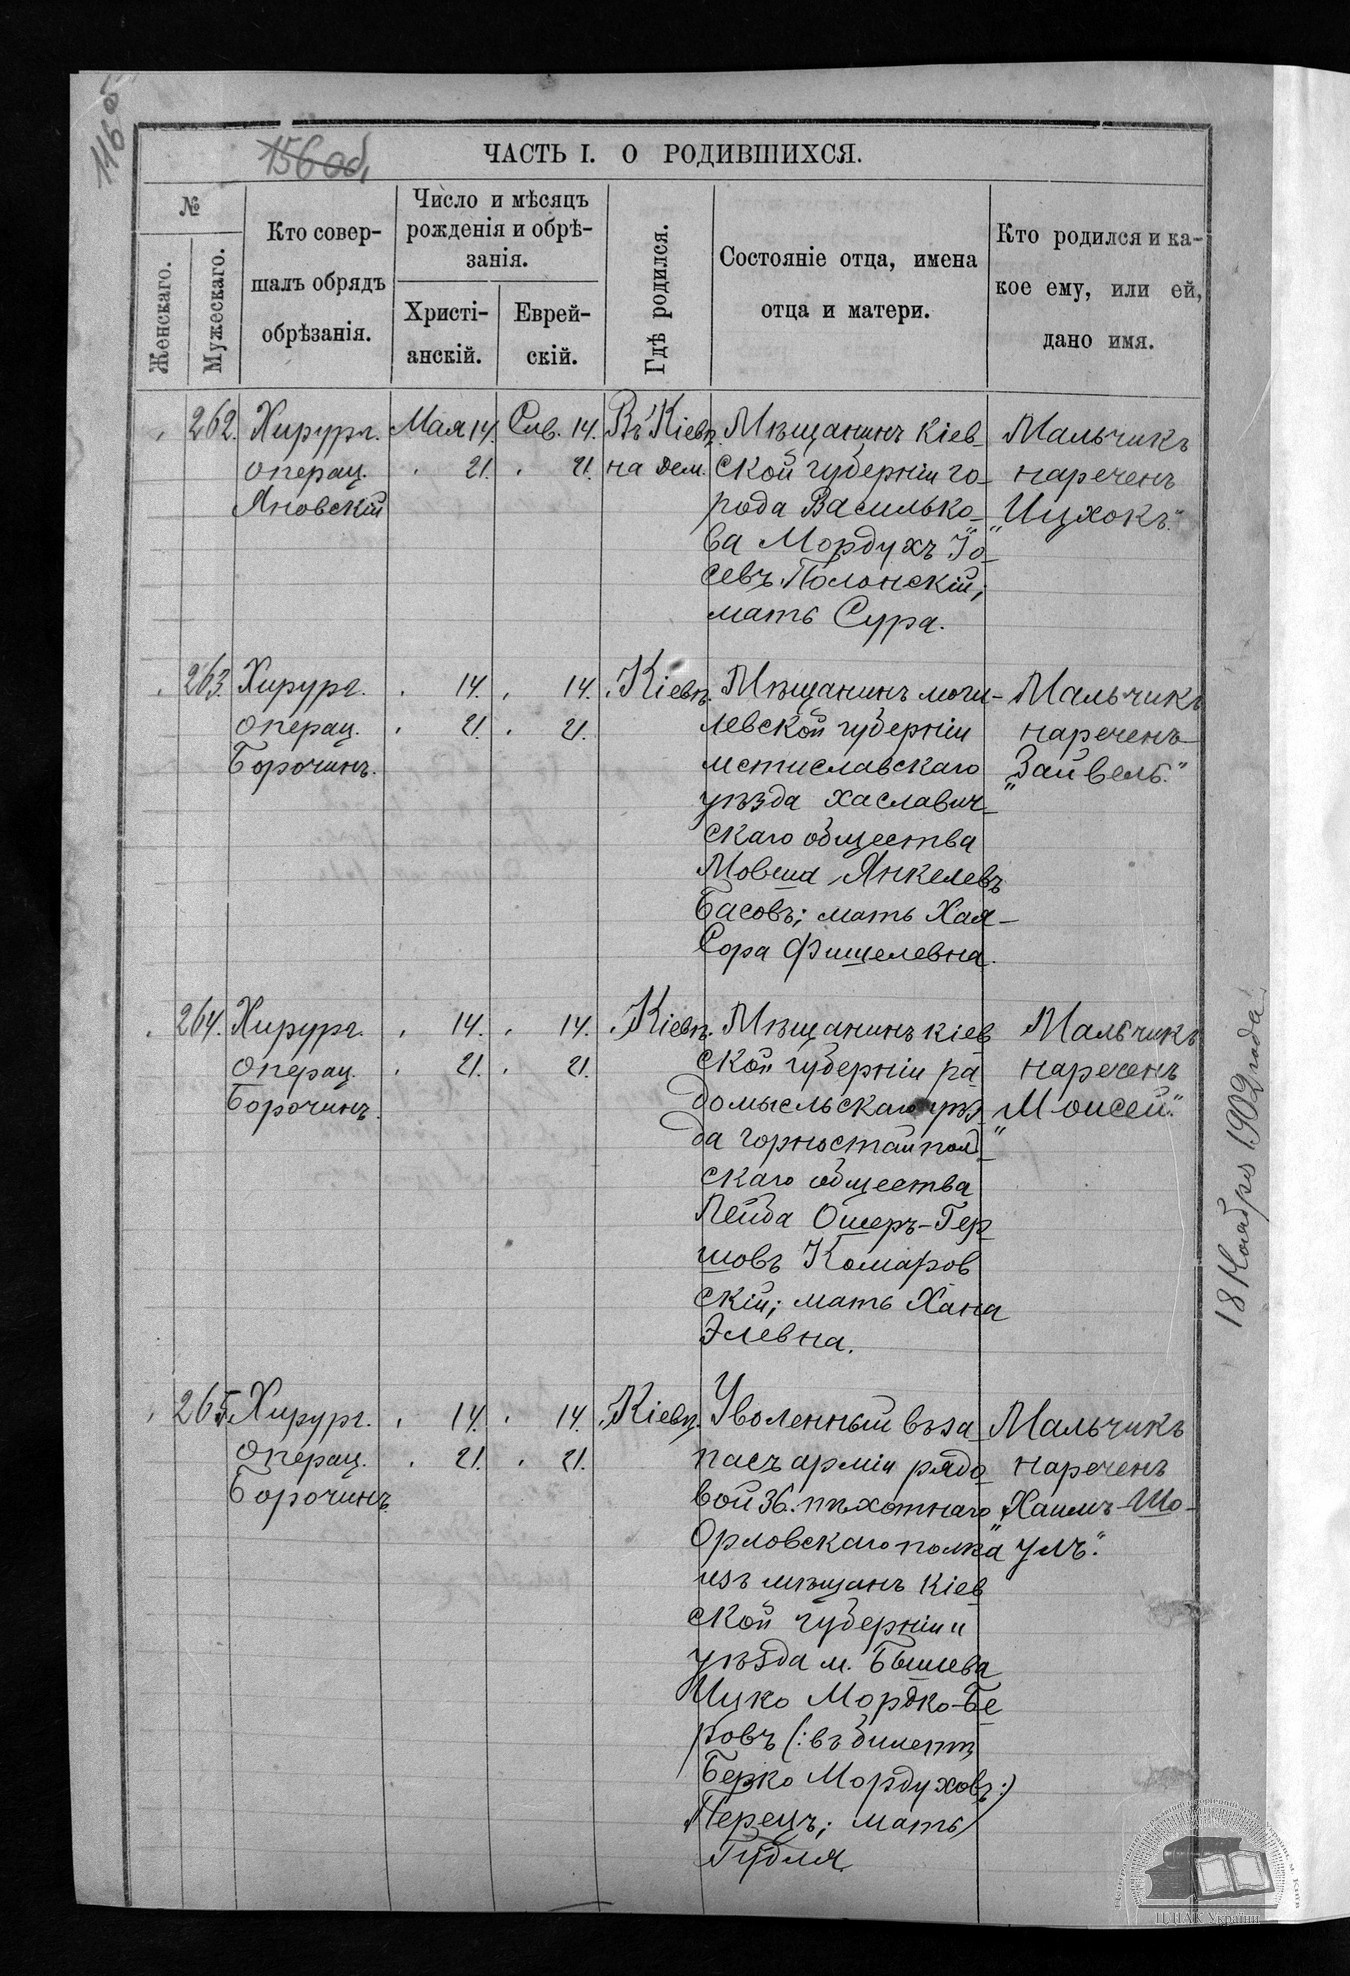 116 об
156 об.
ЧАСТЬ I. О РОДИВШИХСЯ.
№
Женскаго.
Мужескаго.
Кто совер-
шалъ обрядъ
обрѣзанія.
Число и мѣсяцъ
рожденія и обрѣ-
занія.
Христі-
анскій.
Еврей-
скій.
Гдѣ родился.
Состояніе отца, имена
отца и матери.
Кто родился и ка-
кое ему, или ей,
дано имя.
262.
Хирург.
операц.
Яновскій
Мая 14.
21.
Сив. 14.
21.
Въ Кіевѣ
на Дем.
Мѣщанинъ кіев-
ской губерніи го-
рода Василько-
ва Мордухъ Іо-
севъ Полонскій;
мать Сура.
Мальчикъ
нареченъ
"Ицхокъ."
263.
Хирург.
операц.
Борочинъ.
14.
21.
14.
21.
Кіевѣ.
Мѣщанинъ моги-
левской губерніи
мстиславскаго
уѣзда хаславич-
скаго общества
Мовша Янкелевъ
Басовъ; мать Хая-
Сора Фишелевна.
Мальчикъ
нареченъ
"Зайвель."
264.
Хирург.
операц.
Борочинъ.
14.
21.
14.
21.
Кіевѣ.
Мѣщанинъ кіев
ской губерніи ра
домысльскаго уѣз
да горностайпол
скаго общества
Лейба Ошеръ-Гер
шовъ Комаров
скій; мать Хана
Элевна.
Мальчикъ
нареченъ
"Моисей."
265.
Хирург.
операц.
Борочинъ
14.
21.
14.
21.
Кіевѣ.
Уволенный въ за
пасъ арміи рядо
вой 36. пѣхотнаго
Орловскаго полка
изъ мѣщанъ кіев
ской губерніи и
уѣзда м. Бышева
Ицко Мордко-Бе
ровъ (:въ билетѣ
Берко Мордуховъ:)
Перецъ; мать
Гудля
Мальчикъ
нареченъ
"Хаимъ-Шо-
улъ."
18 Ноября 1902 года
ЦДІАК України